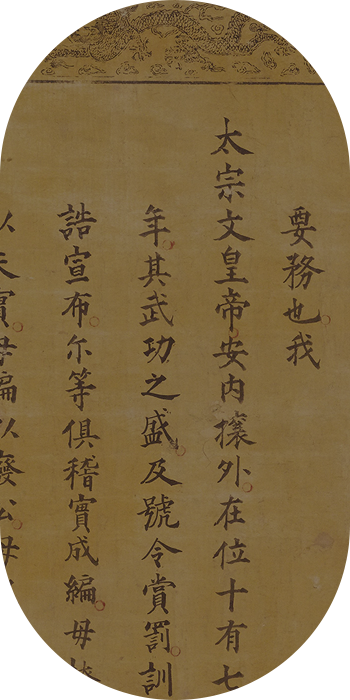 要務也我
太宗文皇帝安内攘外在位十有七
年其武功之盛及號令賞罰訓
誥宣布尔等俱稽實成編毋
以天實毋徧以廢公毋